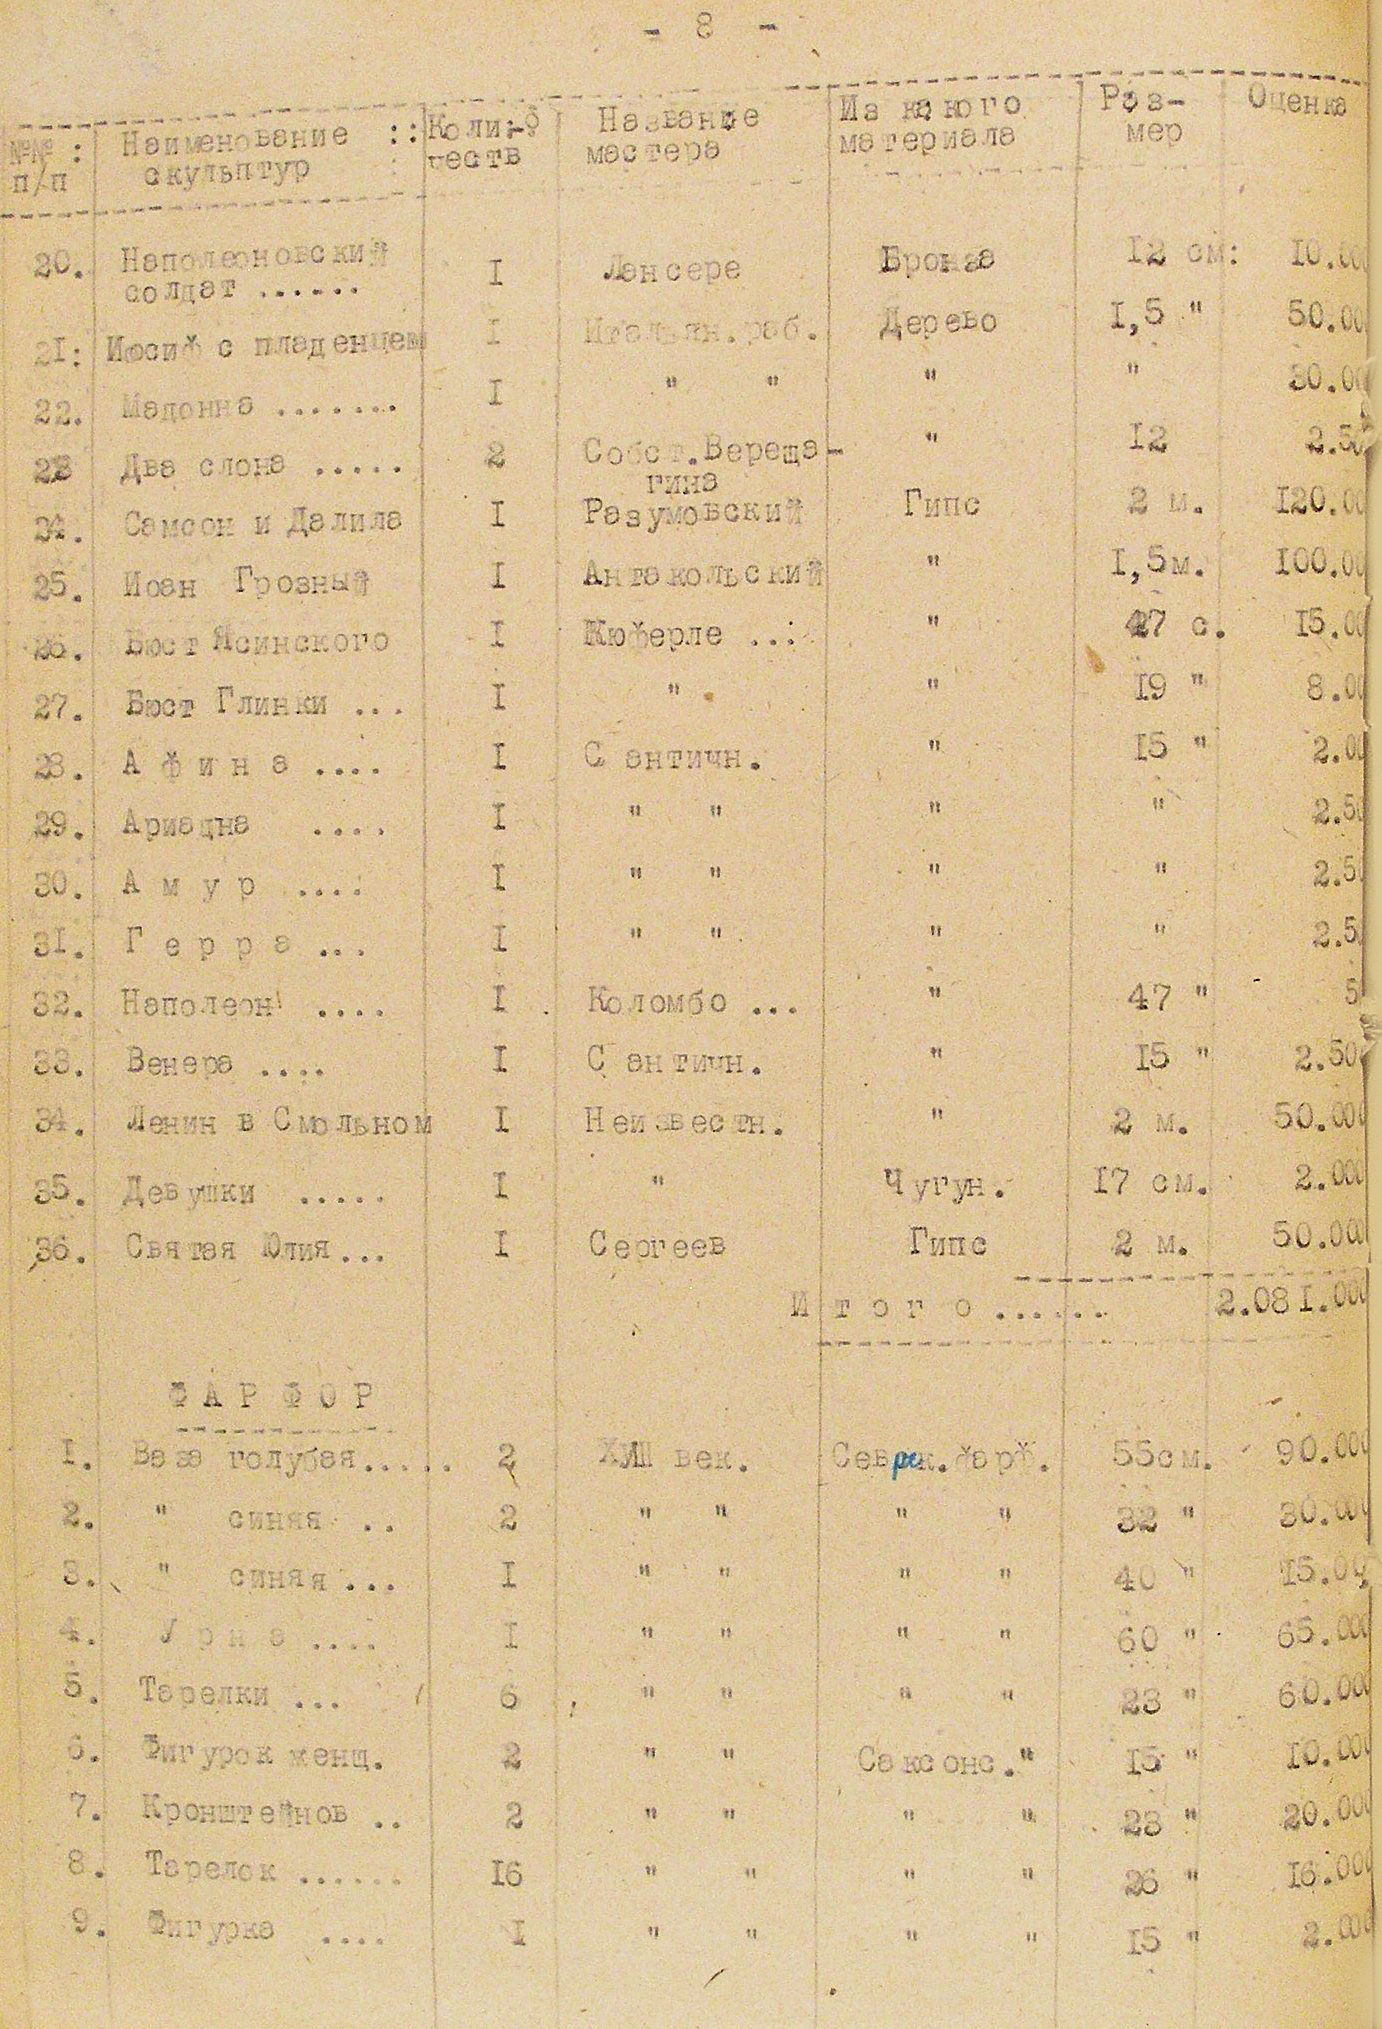 - 8 -
№№ : Наименование :: Коли-о Название Из какого Раз- Оценка
п/п скульптур честв мастера материала мер
20. Наполеоновский I Лансере Бронза 12 см: I0.000
солдат ......
2I: Иосиф с пладенцем I Итальян.раб. Дерево I,5 " 50.00
22. Мадонна ....... I " " " " 30.00
23 Два слона ..... 2 Собст.Вереща- " I2 2.50
гина
24. Самсон и Далила I Разумовский Гипс 2 м. I20.00
25. Иоан Грозный I Антакольский " I,5м. I00.00
26. Бюст Ясинского I Жюферле ..: " 47 с. I5.00
27. Бюст Глинки ... I " " I9 " 8.00
28. А ф и н а .... I С античн. " I5 " 2.00
29. Ариадна .... I " " " " 2.50
30. А м у р .... I " " " " 2.50
3I. Г е р р а ... I " " " " 2.5
32. Наполеон .... I Коломбо ... " 47 " 5
33. Венера .... I С античн. " I5 " 2.500
34. Ленин в Смольном I Неизвестн. " 2 м. 50.000
35. Девушки ..... I " Чугун. I7 см. 2.000
36. Святая Юлия... I Сергеев Гипс 2 м. 50.000
И т о г о ...... 2.08I.000
Ф А Р Ф О Р
I. Ваза голубая..... 2 ХУШ век. Севрск.фарф. 55см. 90.000
2. " синяя .. 2 " " " " 32 " 30.000
3. " синяя ... I " " " " 40 " I5.00
4. У р н а .... I " " " " 60 " 65.000
5. Тарелки ... 6 " " " " 23 " 60.000
6. Фигурок женщ. 2 " " Саксонс." I5 " I0.000
7. Кронштейнов .. 2 " " " " 23 " 20.000
8. Тарелок ...... I6 " " " " 26 " I6.000
9. Фигурка .... I " " " " I5 " 2.000